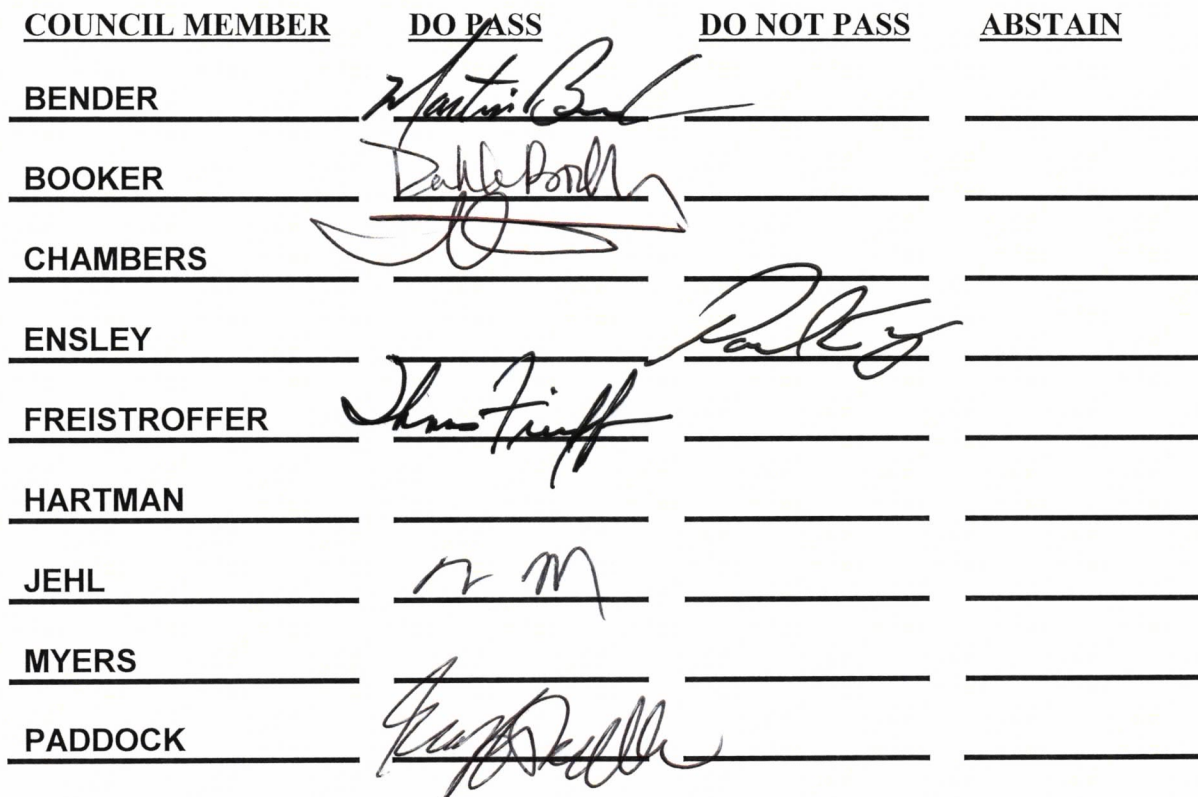 COUNCIL MEMBER DO PASS DO NOT PASS ABSTAIN
BENDER Martin
BOOKER
CHAMBERS
ENSLEY
FREISTROFFER
HARTMAN
JEHL
MYERS
PADDOCK